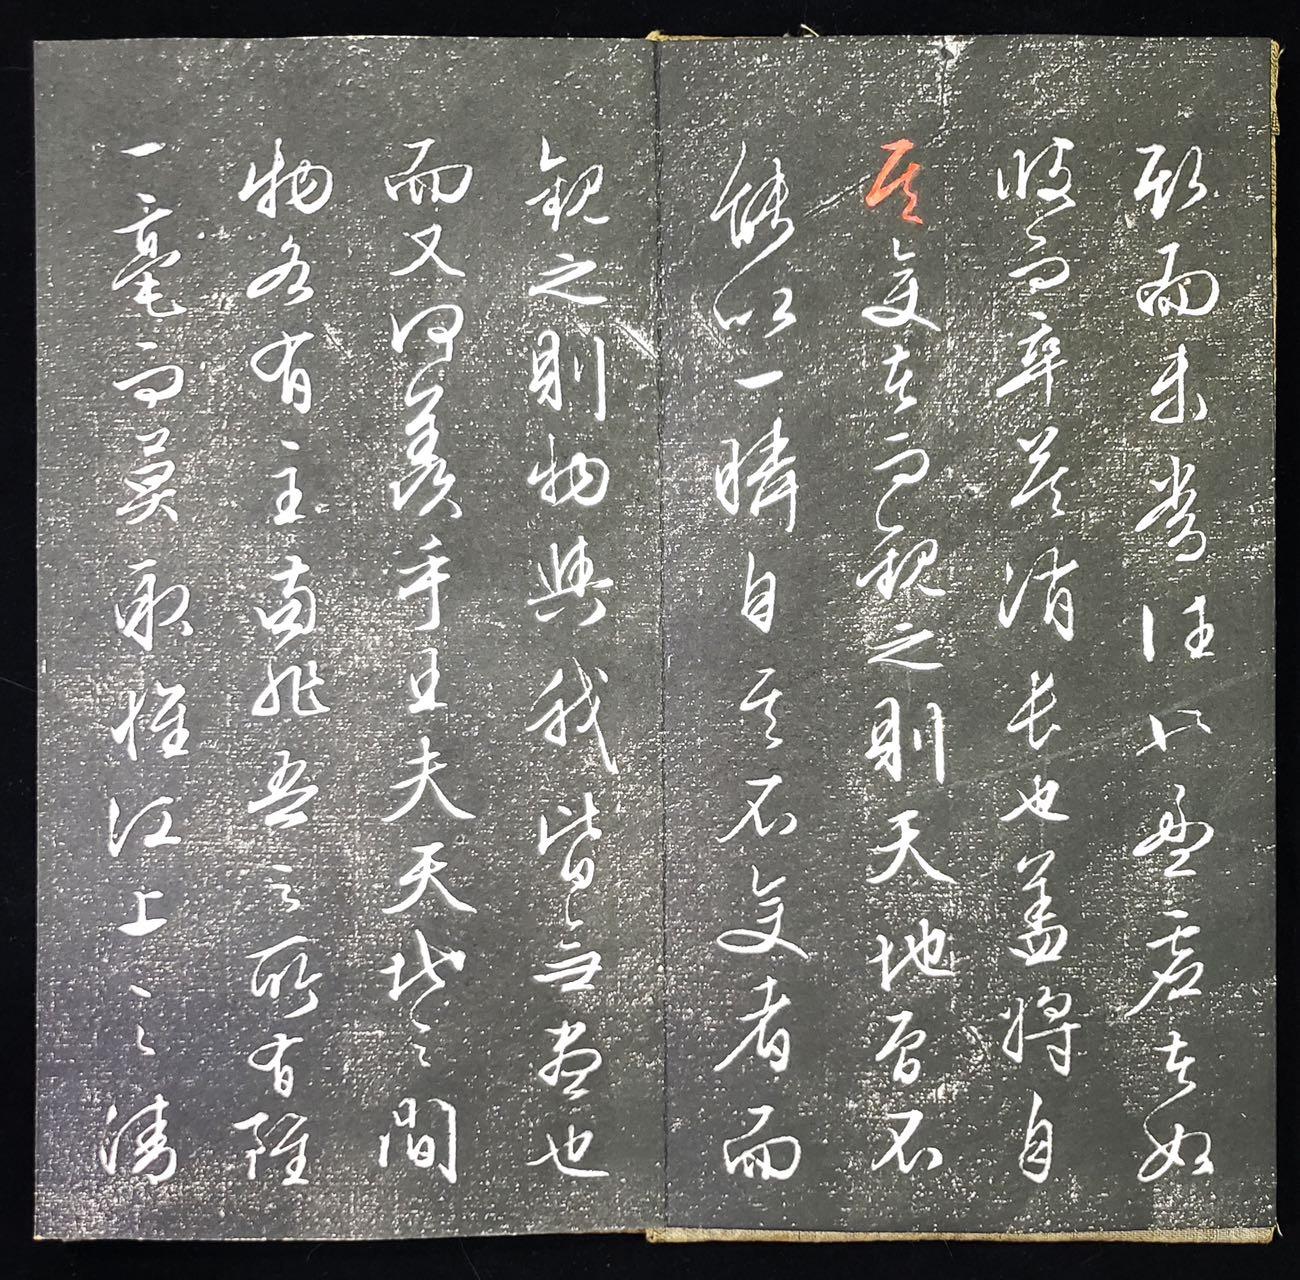 斯而未嘗往也盈虛者如
彼而卒莫消長也蓋將自
其變者而觀之則天地曾不
能以一瞬自其不變者而
觀之則物與我皆無盡也
而又何羨乎且夫天地之間
物各有主苟非吾之所有雖
一毫而莫取惟江上之清